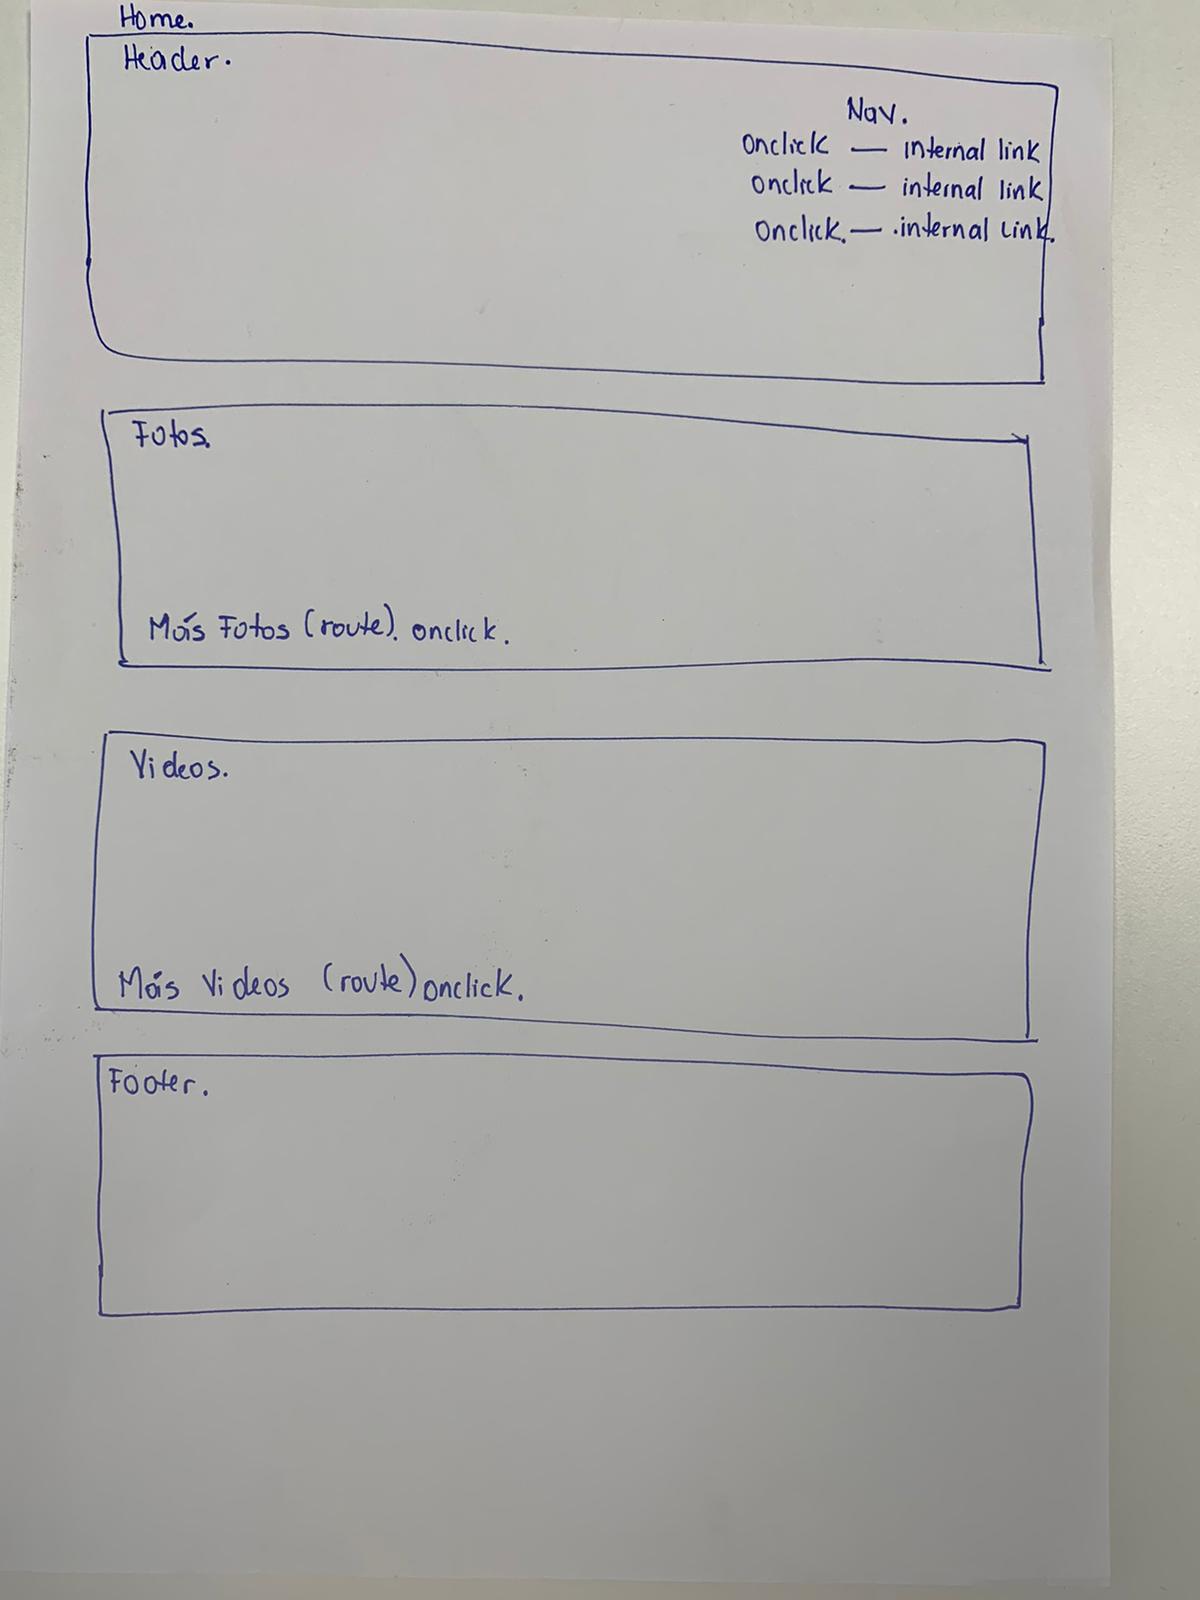 Home.
Header.
Nav.
Onclick — internal link
onclick — internal link
Onclick. — .internal Link.
Fotos.
Más Fotos (route). onclick.
Videos.
Más Videos (route) onclick.
Footer.